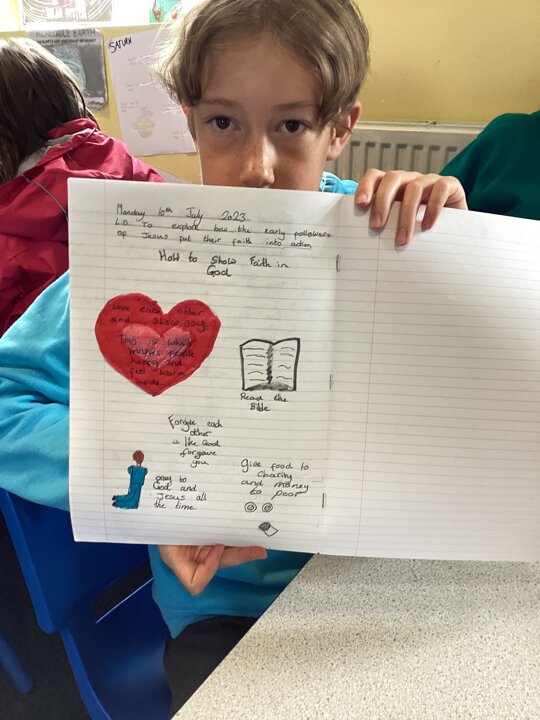 SATURN
Monday 10th July 2023
L.O. To explore how the early followers
of Jesus put their faith into action
How to Show Faith in
God
Love each other
and show joy
This is what
makes people
happy and
feel warm
inside.
Read the
Bible
Forgive each
other
like God
forgave
you
pray to
God and
Jesus all
the time
Give food to
charity
and money
to poor